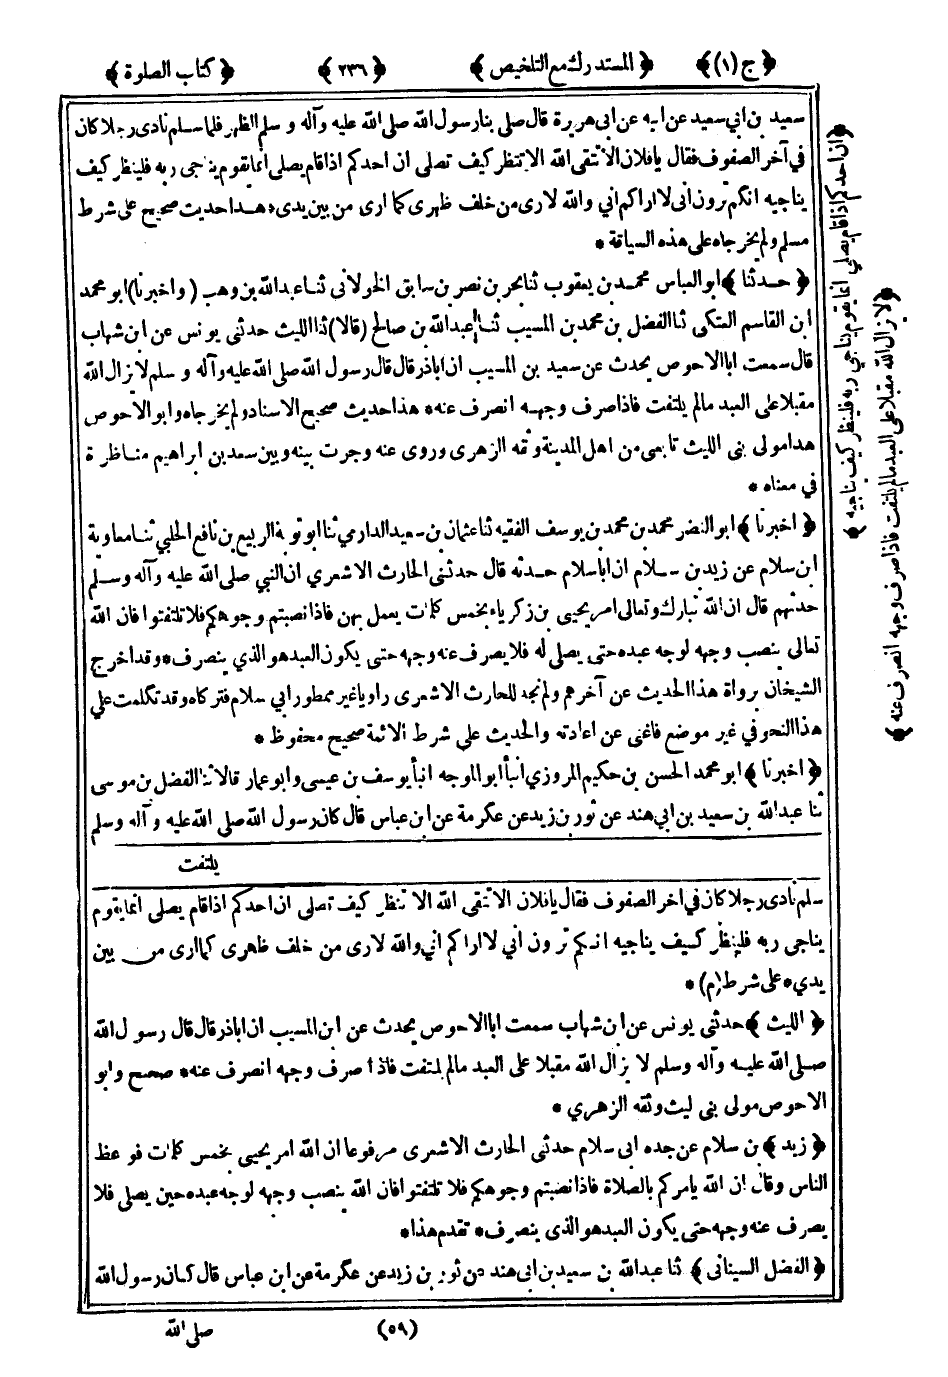 ﴿ ج (١) ﴾ ﴿ المستدرك مع التلخيص ﴾ ﴿ ٢٣٦ ﴾ ﴿ كتاب الصلوة ﴾
سعيد بن ابي سعيد عن ابيه عن ابى هريرة قال صلى بنا رسول الله صلى الله عليه وآله وسلم الظهر فلما سلم نادى رجلا كان
في آخر الصفوف فقال يا فلان الا تتقى الله الا تنظر كيف تصلى ان احدكم اذا قام يصلى انما يقوم يناجى ربه فلينظر كيف
يناجيه انكم ترون انى لا اراكم اني والله لارى من خلف ظهرى كما ارى من بين يدى * هذا حديث صحيح على شرط
مسلم ولم يخرجاه على هذه السياقة *
﴿ حدثنا ﴾ ابو العباس محمد بن يعقوب ثنا بحر بن نصر بن سابق الخولانى ثنا عبد الله بن وهب (واخبرنا) ابو محمد
ابن القاسم العتكى ثنا الفضل بن محمد بن المسيب ثنا عبد الله بن صالح (قالا) ثنا الليث حدثنى يونس عن ابن شهاب
قال سمعت ابا الاحوص يحدث عن سعيد بن المسيب ان اباذر قال قال رسول الله صلى الله عليه وآله وسلم لا يزال الله
مقبلا على العبد مالم يلتفت فاذا صرف وجهه انصرف عنه * هذا حديث صحيح الاسناد ولم يخرجاه وابو الاحوص
هذا مولى بنى الليث تابعى من اهل المدينة وثقه الزهرى وروى عنه وجرت بينه وبين سعد بن ابراهيم مناظرة
في معناه *
﴿ اخبرنا ﴾ ابو النضر محمد بن محمد بن يوسف الفقيه ثنا عثمان بن سعيد الدارمي ثنا ابو توبة الربيع بن نافع الحلبي ثنا معاوية
ابن سلام عن زيد بن سلام ان ابا سلام حدثه قال حدثنى الحارث الاشعري ان النبي صلى الله عليه وآله وسلم
حدثهم قال ان الله تبارك وتعالى امر يحيى بن زكرياء بخمس كلمات يعمل بهن فاذا نصبتم وجوهكم فلا تلتفتوا فان الله
تعالى ينصب وجهه لوجه عبده حتى يصلى له فلا يصرف عنه وجهه حتى يكون العبد هو الذي ينصرف * وقد اخرج
الشيخان برواة هذا الحديث عن آخرهم ولم نجد للحارث الاشعرى راويا غير ممطور ابي سلام فتركاه وقد تكلمت علي
هذا النحو في غير موضع فاغنى عن اعادته والحديث على شرط الائمة صحيح محفوظ *
﴿ اخبرنا ﴾ ابو محمد الحسن بن حكيم المروزي انبأ ابو الموجه انبأ يوسف بن عيسى وابو عمار قالا ثنا الفضل بن موسى
ثنا عبد الله بن سعيد بن ابي هند عن ثور بن زيد عن عكرمة عن ابن عباس قال كان رسول الله صلى الله عليه وآله وسلم
يلتفت
سلم نادى رجلا كان في اخر الصفوف فقال يا فلان الا تتقى الله الا تنظر كيف تصلى ان احدكم اذا قام يصلى انما يقوم
يناجى ربه فلينظر كيف يناجيه انكم ترون اني لا اراكم اني والله لارى من خلف ظهرى كما ارى من بين
يدي * على شرط (م) *
﴿ الليث ﴾ حدثنى يونس عن ابن شهاب سمعت ابا الاحوص يحدث عن ابن المسيب ان اباذر قال قال رسول الله
صلى الله عليه وآله وسلم لا يزال الله مقبلا على العبد مالم يلتفت فاذا صرف وجهه انصرف عنه * صحيح وابو
الاحوص مولى بنى ليث وثقه الزهري *
﴿ زيد ﴾ بن سلام عن جده ابى سلام حدثنى الحارث الاشعرى مرفوعا ان الله امر يحيى بخمس كلمات فوعظ
الناس وقال ان الله يامركم بالصلاة فاذا نصبتم وجوهكم فلا تلتفتوا فان الله ينصب وجهه لوجه عبده حين يصلى فلا
يصرف عنه وجهه حتى يكون العبد هو الذى ينصرف * تقدم هذا *
﴿ الفضل السينانى ﴾ ثنا عبد الله بن سعيد بن ابى هند عن ثور بن زيد عن عكرمة عن ابن عباس قال كان رسول الله
(٥٩) صلى الله
﴿ ان احدكم اذا قام يصلي انما يقوم يناجي ربه فلينظر كيف يناجيه ﴾
﴿ لا يزال الله مقبلا على العبد مالم يلتفت فاذا صرف وجهه انصرف عنه ﴾